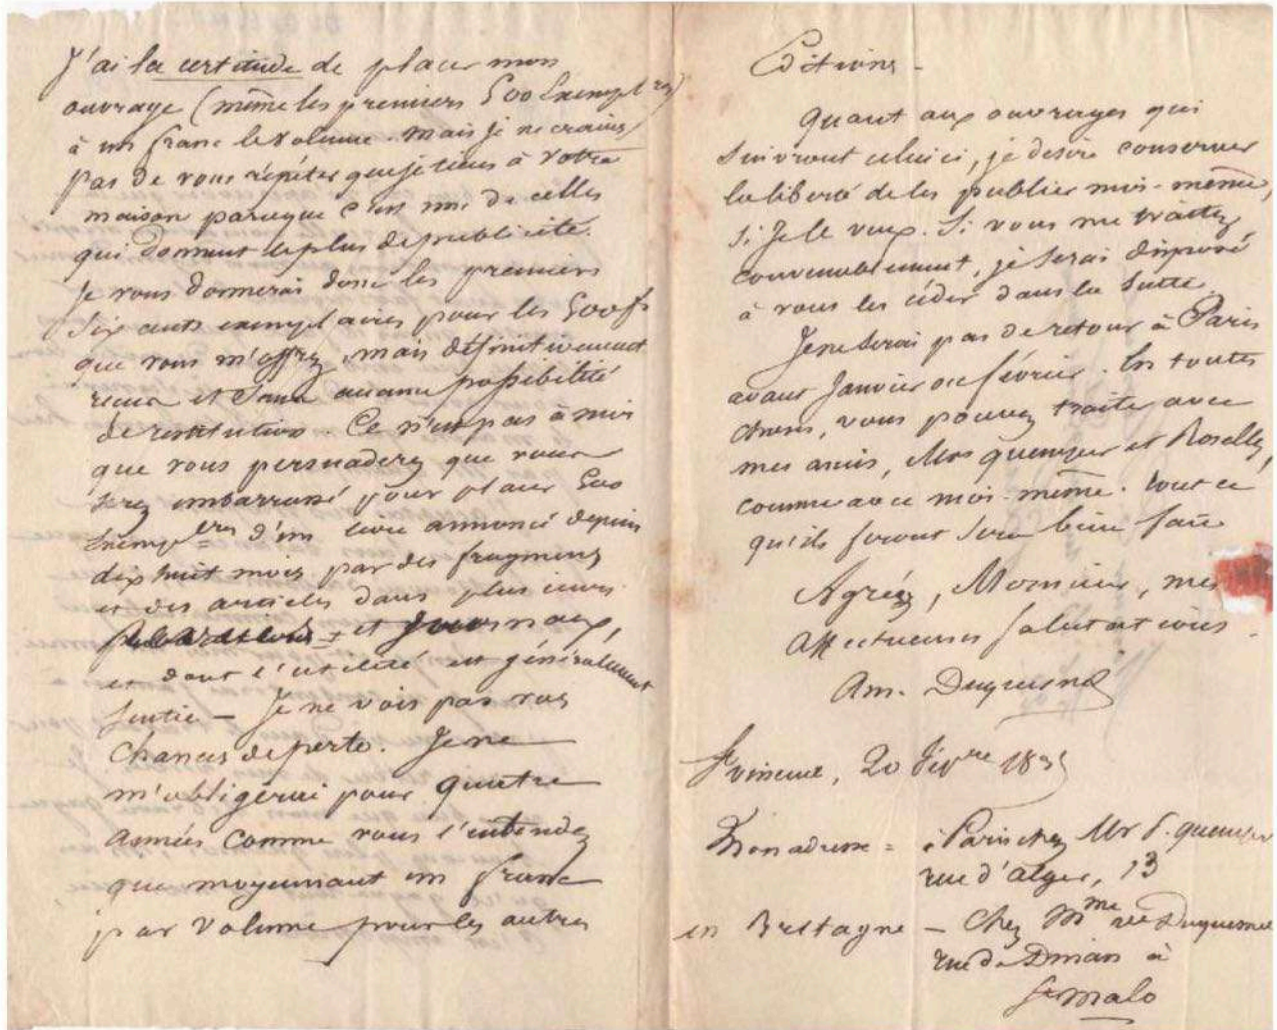 J'ai la certitude de placer mon
ouvrage (même les premiers 500 Exempl res)
à un franc le volume. mais je ne crains
pas de vous répéter que je tiens à votre
maison parceque c'est une de celles
qui donnent le plus de publicité.
Je vous donnerai donc les premiers
six cents exemplaires pour les 500 f
que vous m'offrez, mais définitivement
reçus et sans aucune possibilité
de restitution. Ce n'est pas à moi
que vous persuaderez que vous
serez embarrassé pour placer 500
Exempl res d'un livre annoncé depuis
dix huit mois par des fragmens
et des articles dans plusieurs
et journaux,
et dont l'utilité est généralement
sentie — Je ne vois pas vos
chances de perte. Je ne
m'obligerai pour quatre
années comme vous l'entendez
que moyennant un franc
par volume pour les autres
Editions -
Quant aux ouvrages qui
suivront celui ci, je desire conserver
la liberté de les publier moi-même,
si je le veux. Si vous me traitez
convenablement, je serai disposé
à vous les céder dans la suite.
Je ne serai pas de retour à Paris
avant Janvier ou février. En toutes
choses, vous pouvez traiter avec
mes amis, Mrs et
comme avec moi-même. tout ce
qu'ils feront sera bien fait
Agréez, Monsieur, mes
affectueuses salutations.
Am. Duquesnel
St Vincent, 20
Mon adresse = à Paris chez Mr
rue d'alger, 13
en Bretagne — Chez Mme ve Duquesnel
rue de Dinan à
St malo